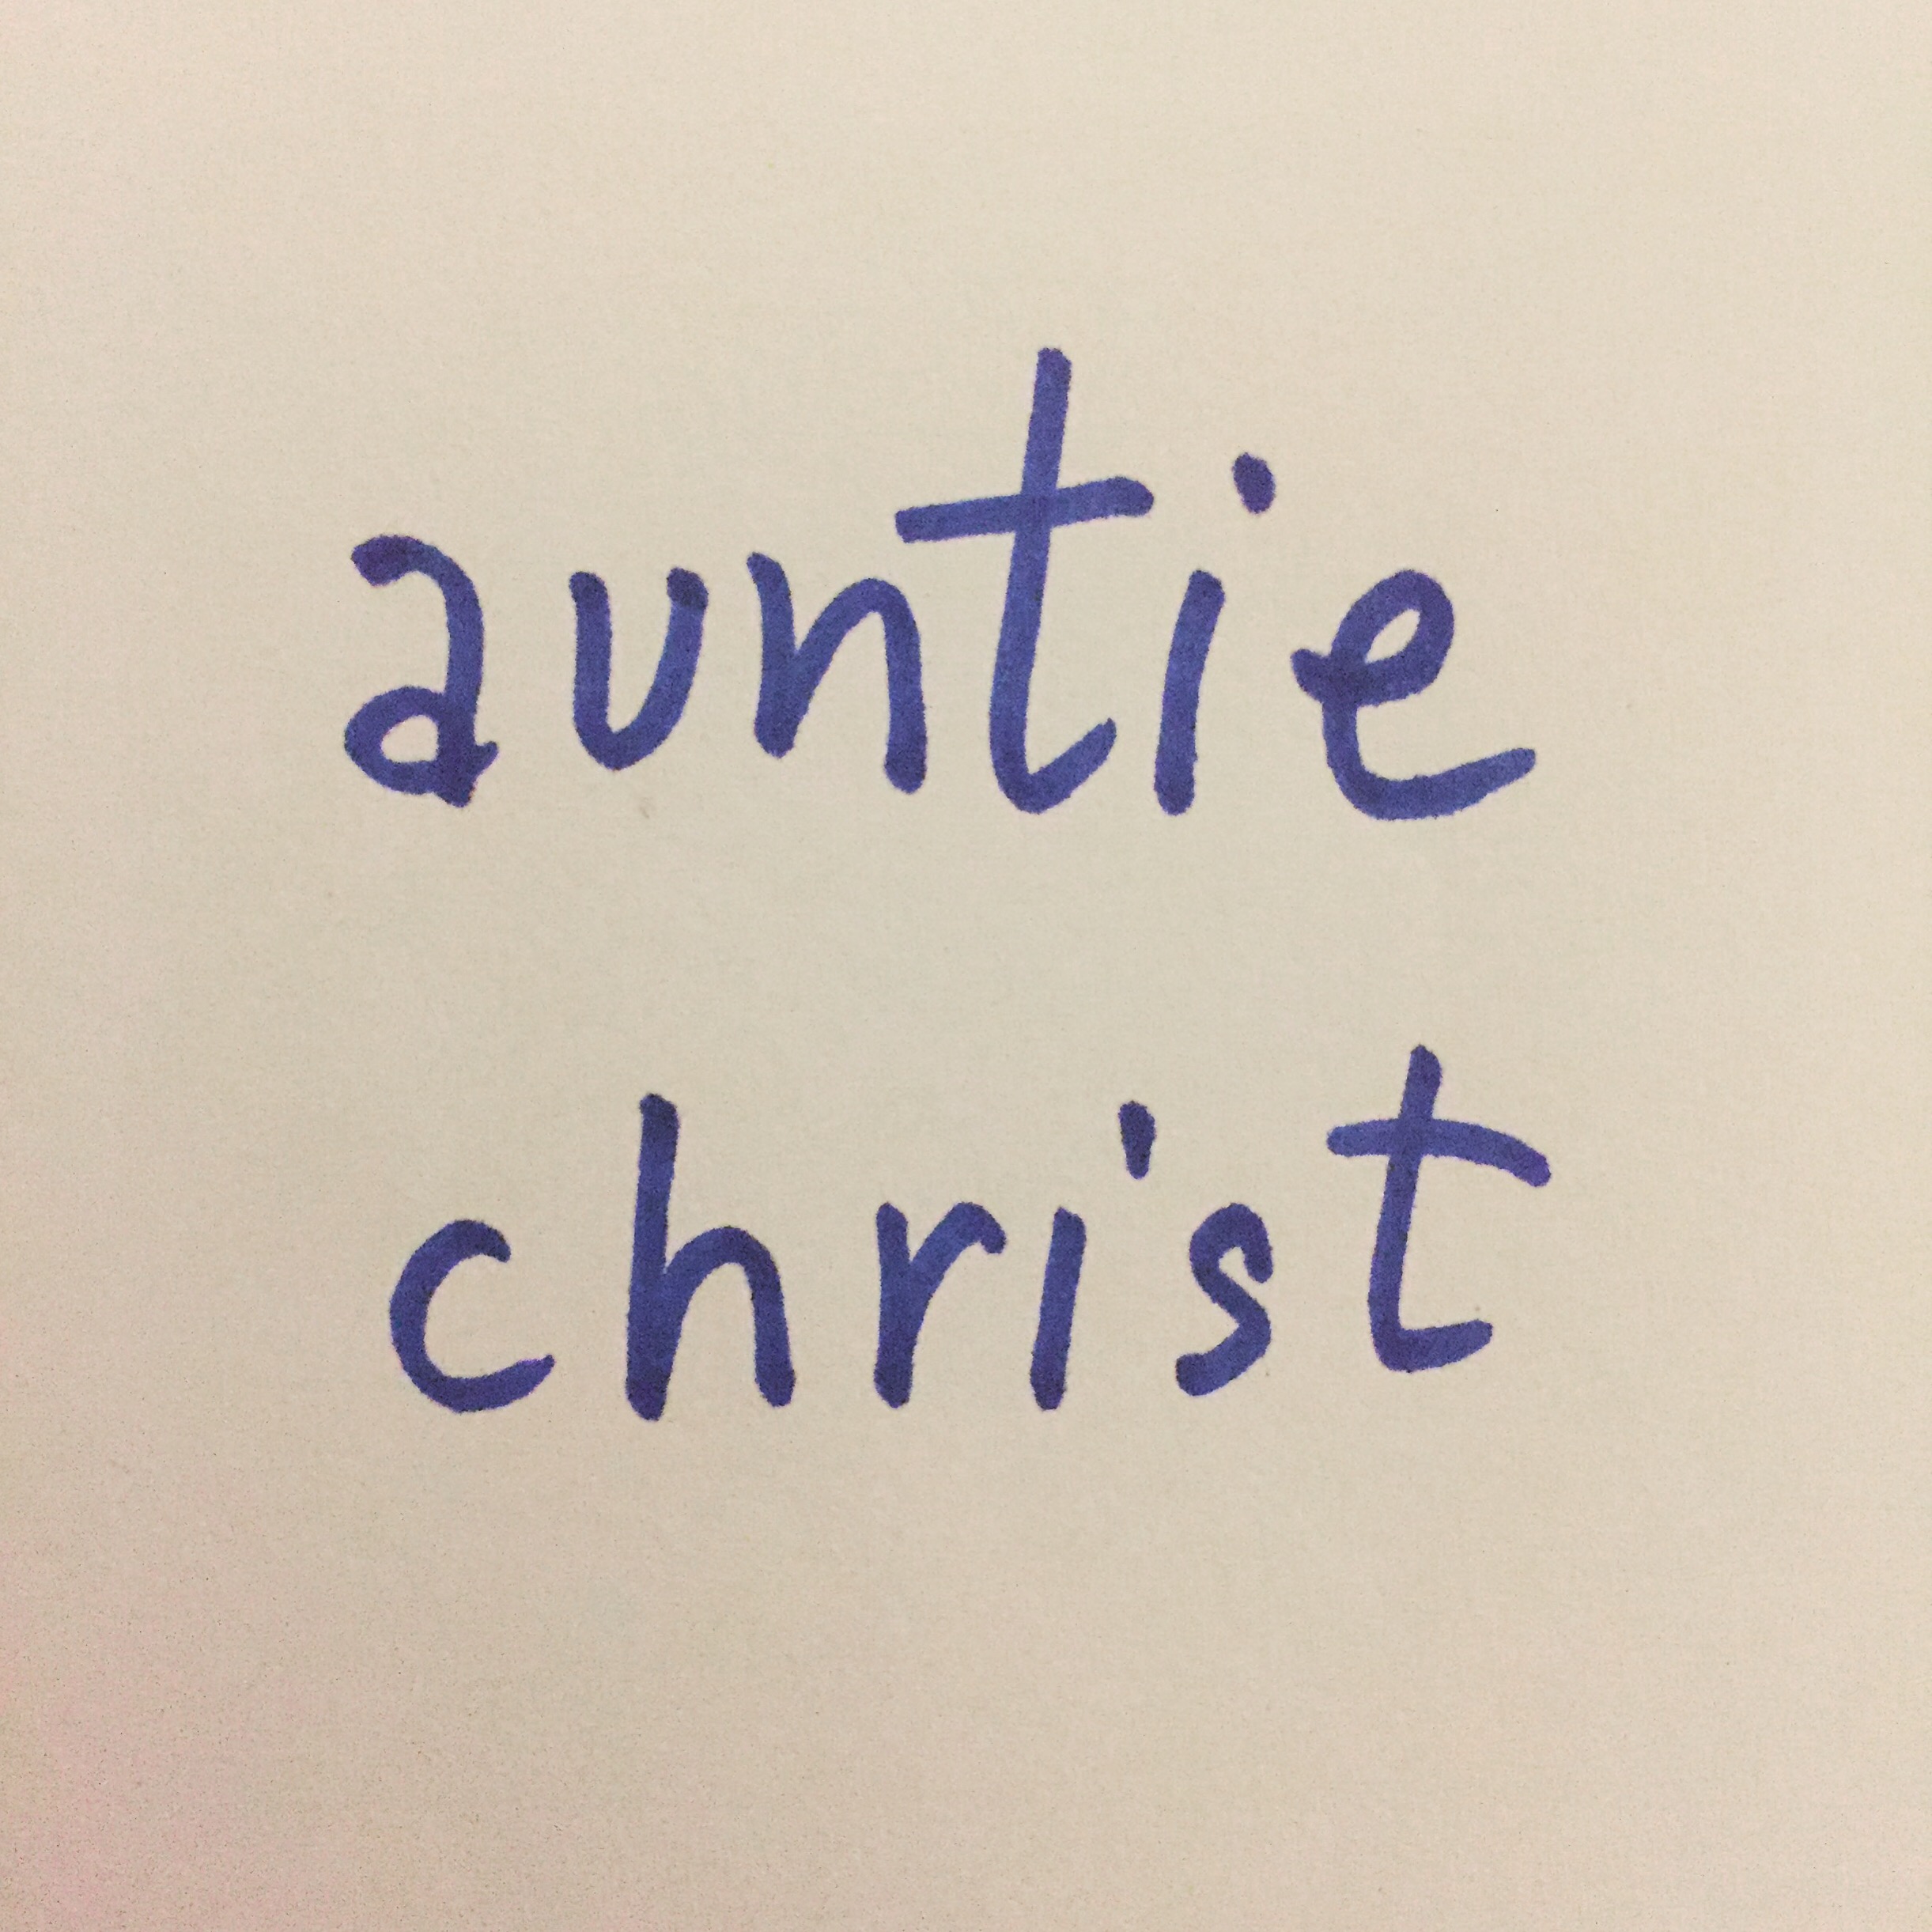 auntie
christ